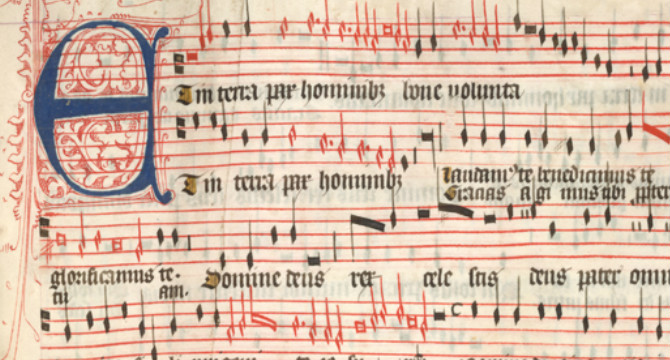 Et in terra pax hominibꝫ bone volunta
Et in terra pax hominibꝫ laudamꝰ te benedicimus te
Gracias agimus tibi ppter
glorificamus te. Domine deus rex celestis deus pater omni
tu am.